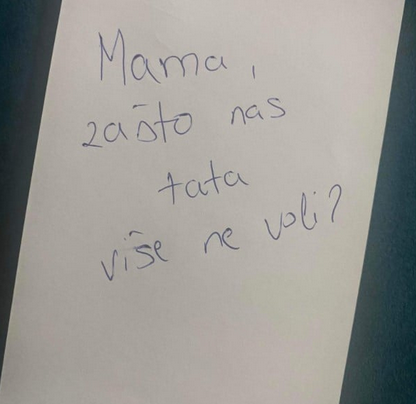 Mama,
zašto nas
tata
više ne voli?